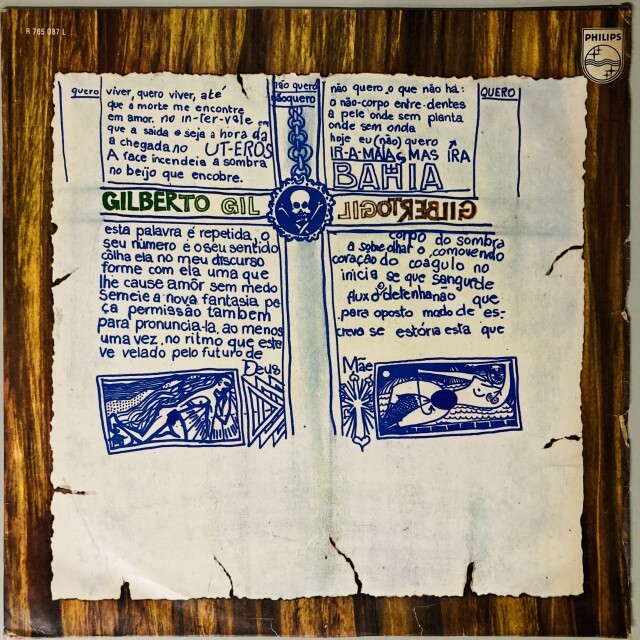 R 765 087 L
PHILIPS
quero
viver, quero viver, até
que a morte me encontre
em amor. no in-ter-vale em
que a saida e seja a hora da
a chegada no UT-EROS
A face incendeia a sombra
no beijo que encobre.
não quero
nãoquero
não quero, o que não há:
o não-corpo entre-dentes
a pele onde sem planta
onde sem onda
hoje eu (não) quero
IR-A-MAIA, MAS IRA
BAHIA
QUERO
GILBERTO GIL
GILBERTO GIL
esta palavra é repetida, o
seu número e o seu sentido
colha ela no meu discurso
forme com ela uma que
lhe cause amôr sem medo
Semeie a nova fantasia pe
ça permissão tambem
para pronuncia-la, ao menos
uma vez, no ritmo que este
ve velado pelo futuro de
Deus
corpo do sombra
a sobre olhar o comovendo
coração do coagulo no
inicia se que sangue de
fluxo detenha não que
para oposto modo de es-
creva se estória esta que
Mãe